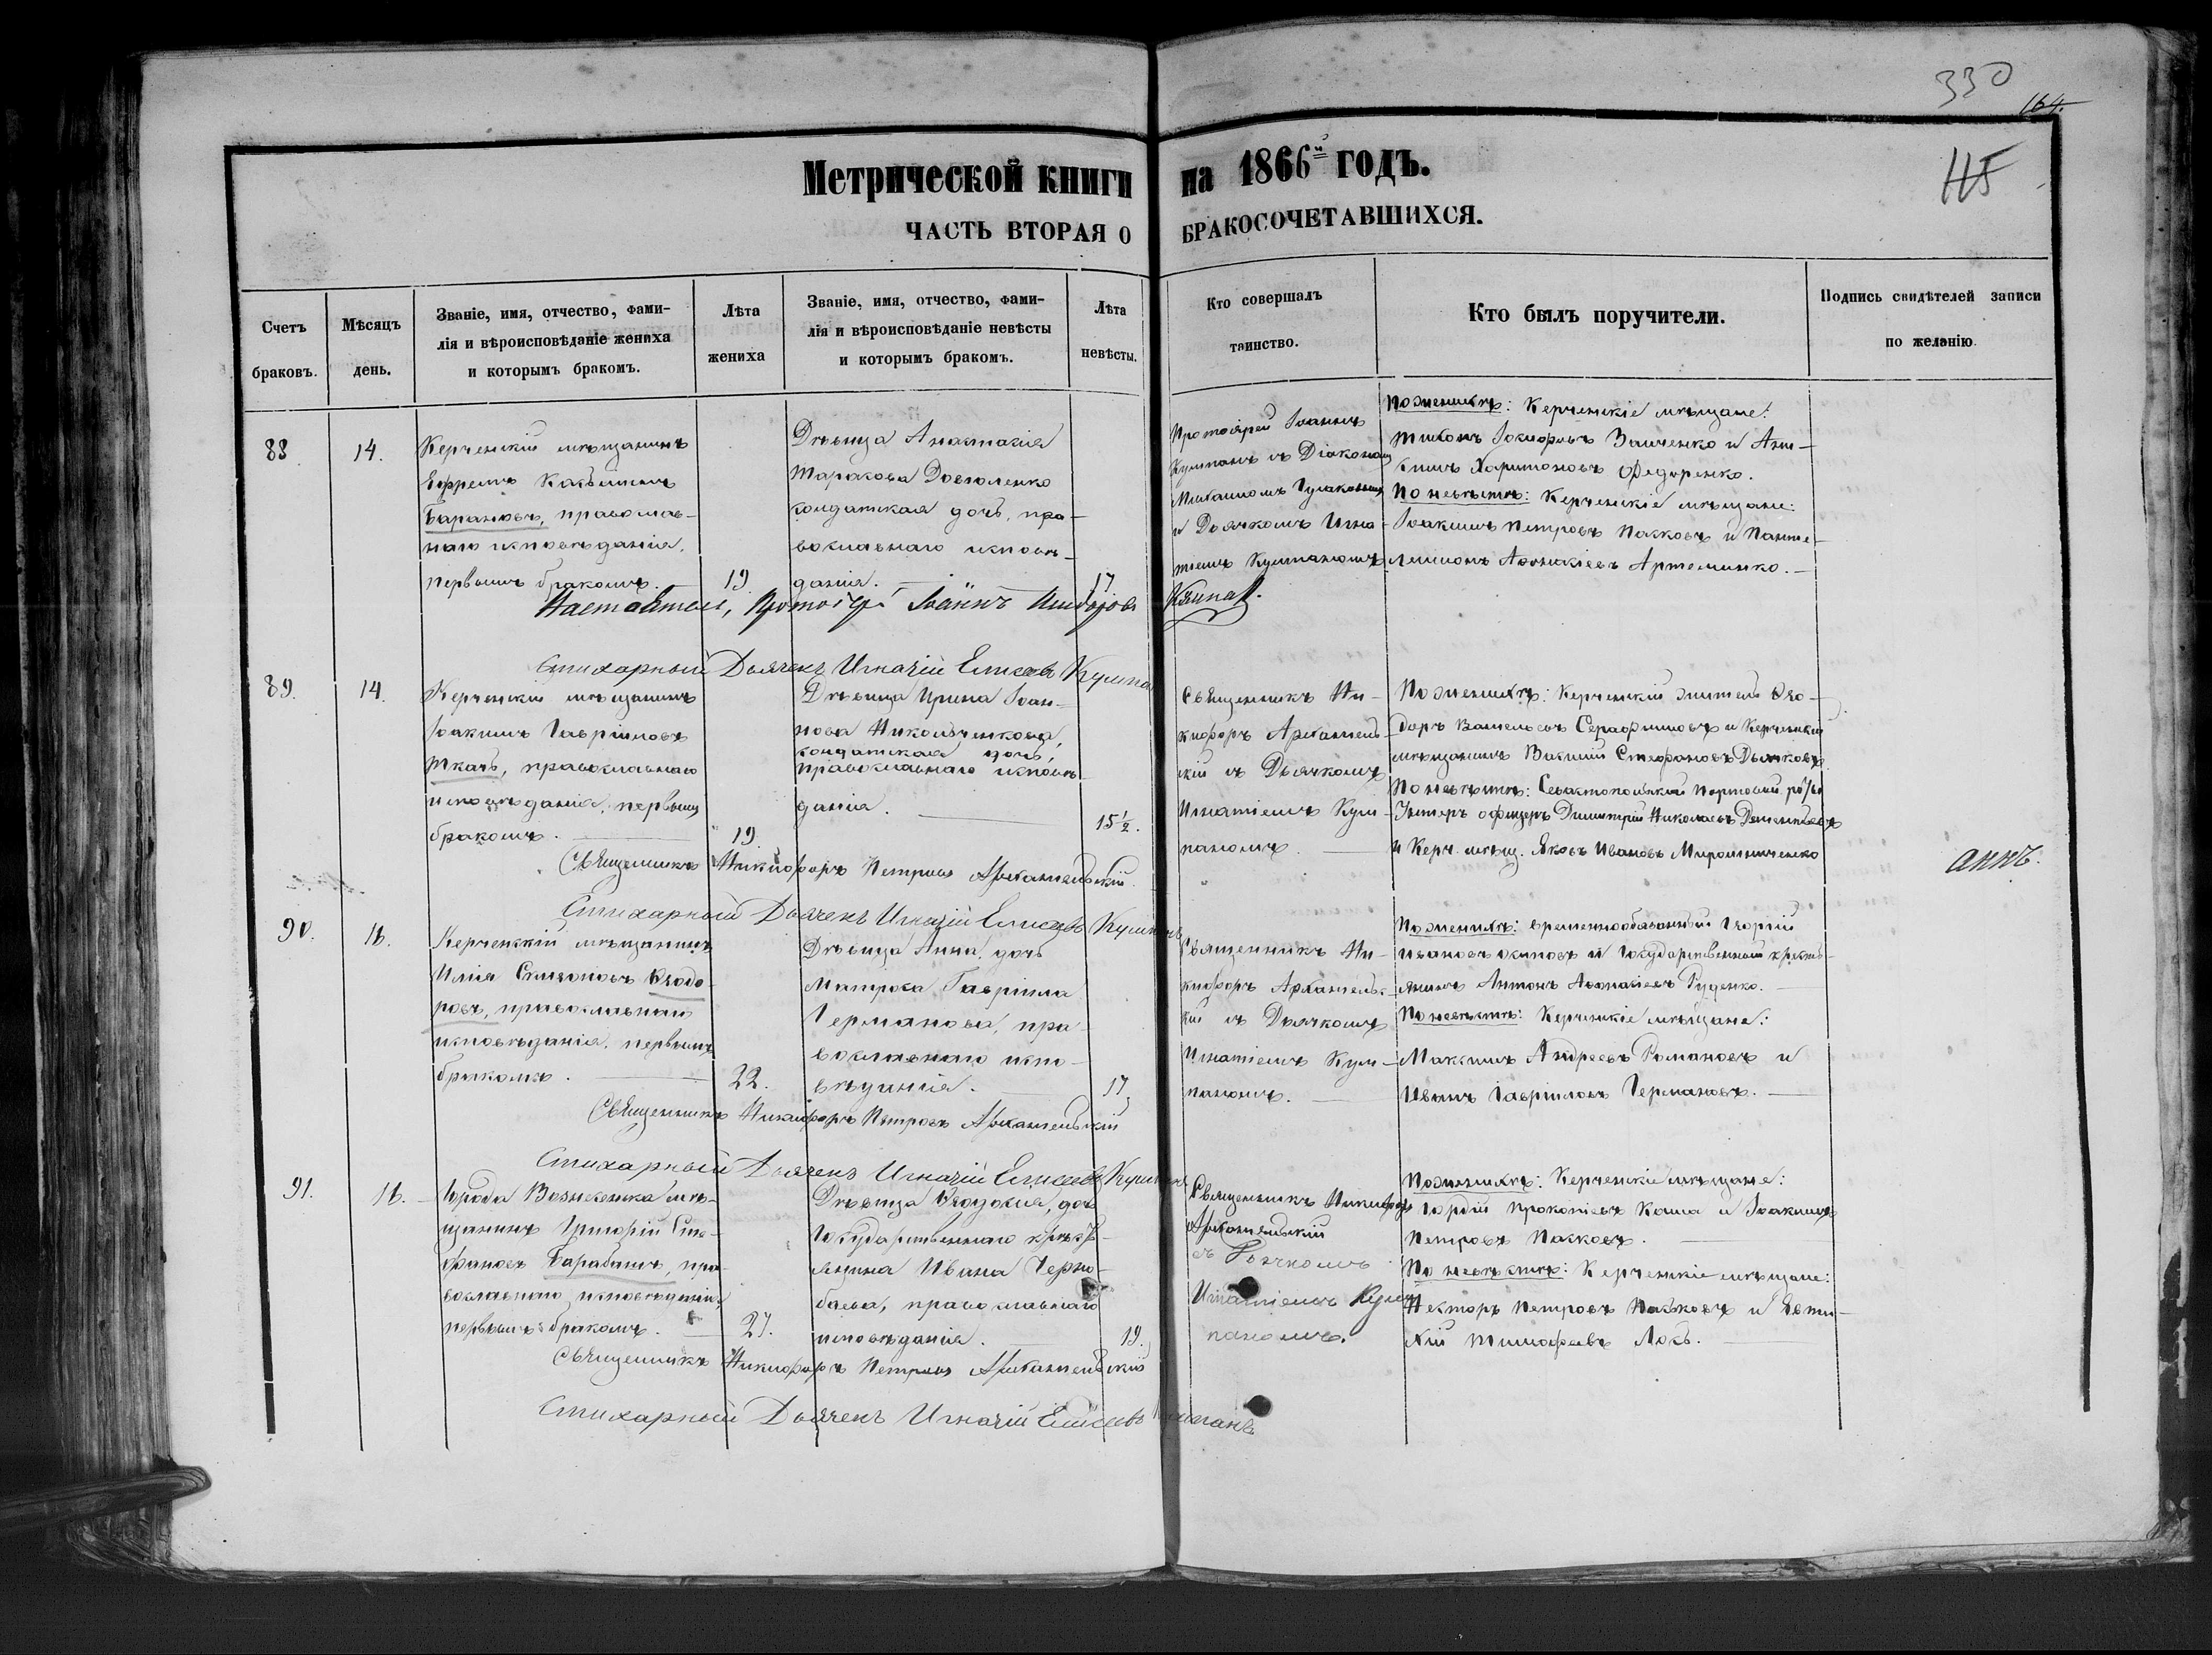 330
164.
115
Метрической книги на 1866й годъ.
ЧАСТЬ ВТОРАЯ О БРАКОСОЧЕТАВШИХСЯ.
Счетъ браковъ.
Мѣсяцъ день.
Званіе, имя, отчество, фами-
лія и вѣроисповѣданіе жениха
и которымъ бракомъ.
Лѣта жениха
Званіе, имя, отчество, фами-
лія и вѣроисповѣданіе невѣсты
и которымъ бракомъ.
Лѣта невѣсты.
Кто совершалъ
таинство.
Кто былъ поручители.
Подпись свидѣтелей записи
по желанію.
88
14.
Керченскій мѣщанинъ
Ефремъ Касьяновъ
Барановъ, православ-
наго исповѣданія,
первымъ бракомъ.
19.
Дѣвица Анастасія
Тарасова Довголенко
солдатская дочь, пра-
вославнаго исповѣ-
данія.
17
Протоіерей Іоаннъ
съ Діакономъ
Михаиломъ
и Дьячкомъ Игна-
тіемъ Кулшаномъ
По женихѣ: Керченскіе мѣщане:
Тихонъ Заиченко и
Харитоновъ Федоренко.
По невѣстѣ: Керченскіе мѣщане:
Іоакимъ Петровъ Пасковъ и Панте-
леимонъ Артеменко.
Настоятель, Протоіер. Іоаннъ
Стихарный Дьячекъ Игнатій Елисеевъ
89.
14.
Керченскій мѣщанинъ
Іоакимъ Гавріиловъ
Ткачъ, православнаго
исповѣданія, первымъ
бракомъ.
19.
Дѣвица Ирина Іоан-
нова Никольченкова,
солдатская дочь,
православнаго исповѣ-
данія.
15 1/2.
Священникъ Ни-
кифоръ Архангель-
скій съ Дьячкомъ
Игнатіемъ
По женихѣ: Керченскій житель Ѳео-
доръ Васильевъ Серафимовъ и Керченскій
мѣщанинъ Василій Стефановъ Дьячковъ.
По невѣстѣ: Севастопольской портовой роты
Унтеръ офицеръ Димитрій Николаевъ Дементьевъ
и Керч. мѣщ. Яковъ Ивановъ Мирошниченко
Священникъ Никифоръ Петровъ Архангельскій
аннъ.
Стихарный Дьячекъ Игнатій Елисеевъ
90.
16.
Керченскій мѣщанинъ
Илія Симоновъ Ѳеодо-
ровъ, православнаго
исповѣданія, первымъ
бракомъ.
22.
Дѣвица Анна, дочь
Матроса Гавріила
Германова, пра-
вославнаго испо-
вѣданія.
17
Священникъ Ни-
кифоръ Архангельс-
кій съ Дьячкомъ
Игнатіемъ
По женихѣ: временнообязанный Георгій
Ивановъ Осиповъ и Государственный кресть-
янинъ Антонъ Аѳанасіевъ Руденко.
По невѣстѣ: Керченскіе мѣщане:
Максимъ Андреевъ Романовъ и
Иванъ Гавріиловъ Германовъ.
Священникъ Никифоръ Петровъ Архангельскій
Стихарный Дьячекъ Игнатій Елисеевъ
91.
16.
Города Вознесенска мѣ-
щанинъ Григорій Сте-
фановъ Барабашъ, пра-
вославнаго исповѣданія,
первымъ бракомъ.
27.
Дѣвица Ѳеодосія, дочь
Государственнаго кресть-
янина Ивана Черно-
баева, православнаго
исповѣданія.
19.
Священникъ Никифоръ
Архангельскій
съ Дьячкомъ
Игнатіемъ
По женихѣ: Керченскіе мѣщане:
Гордій Прокопіевъ Каша и Іоакимъ
Петровъ Пасковъ.
По невѣстѣ: Керченскіе мѣщане:
Несторъ Петровъ Пасковъ и Евти-
хій Тимофеевъ Лось.
Священникъ Никифоръ Петровъ Архангельскій
Стихарный Дьячекъ Игнатій Елисеевъ